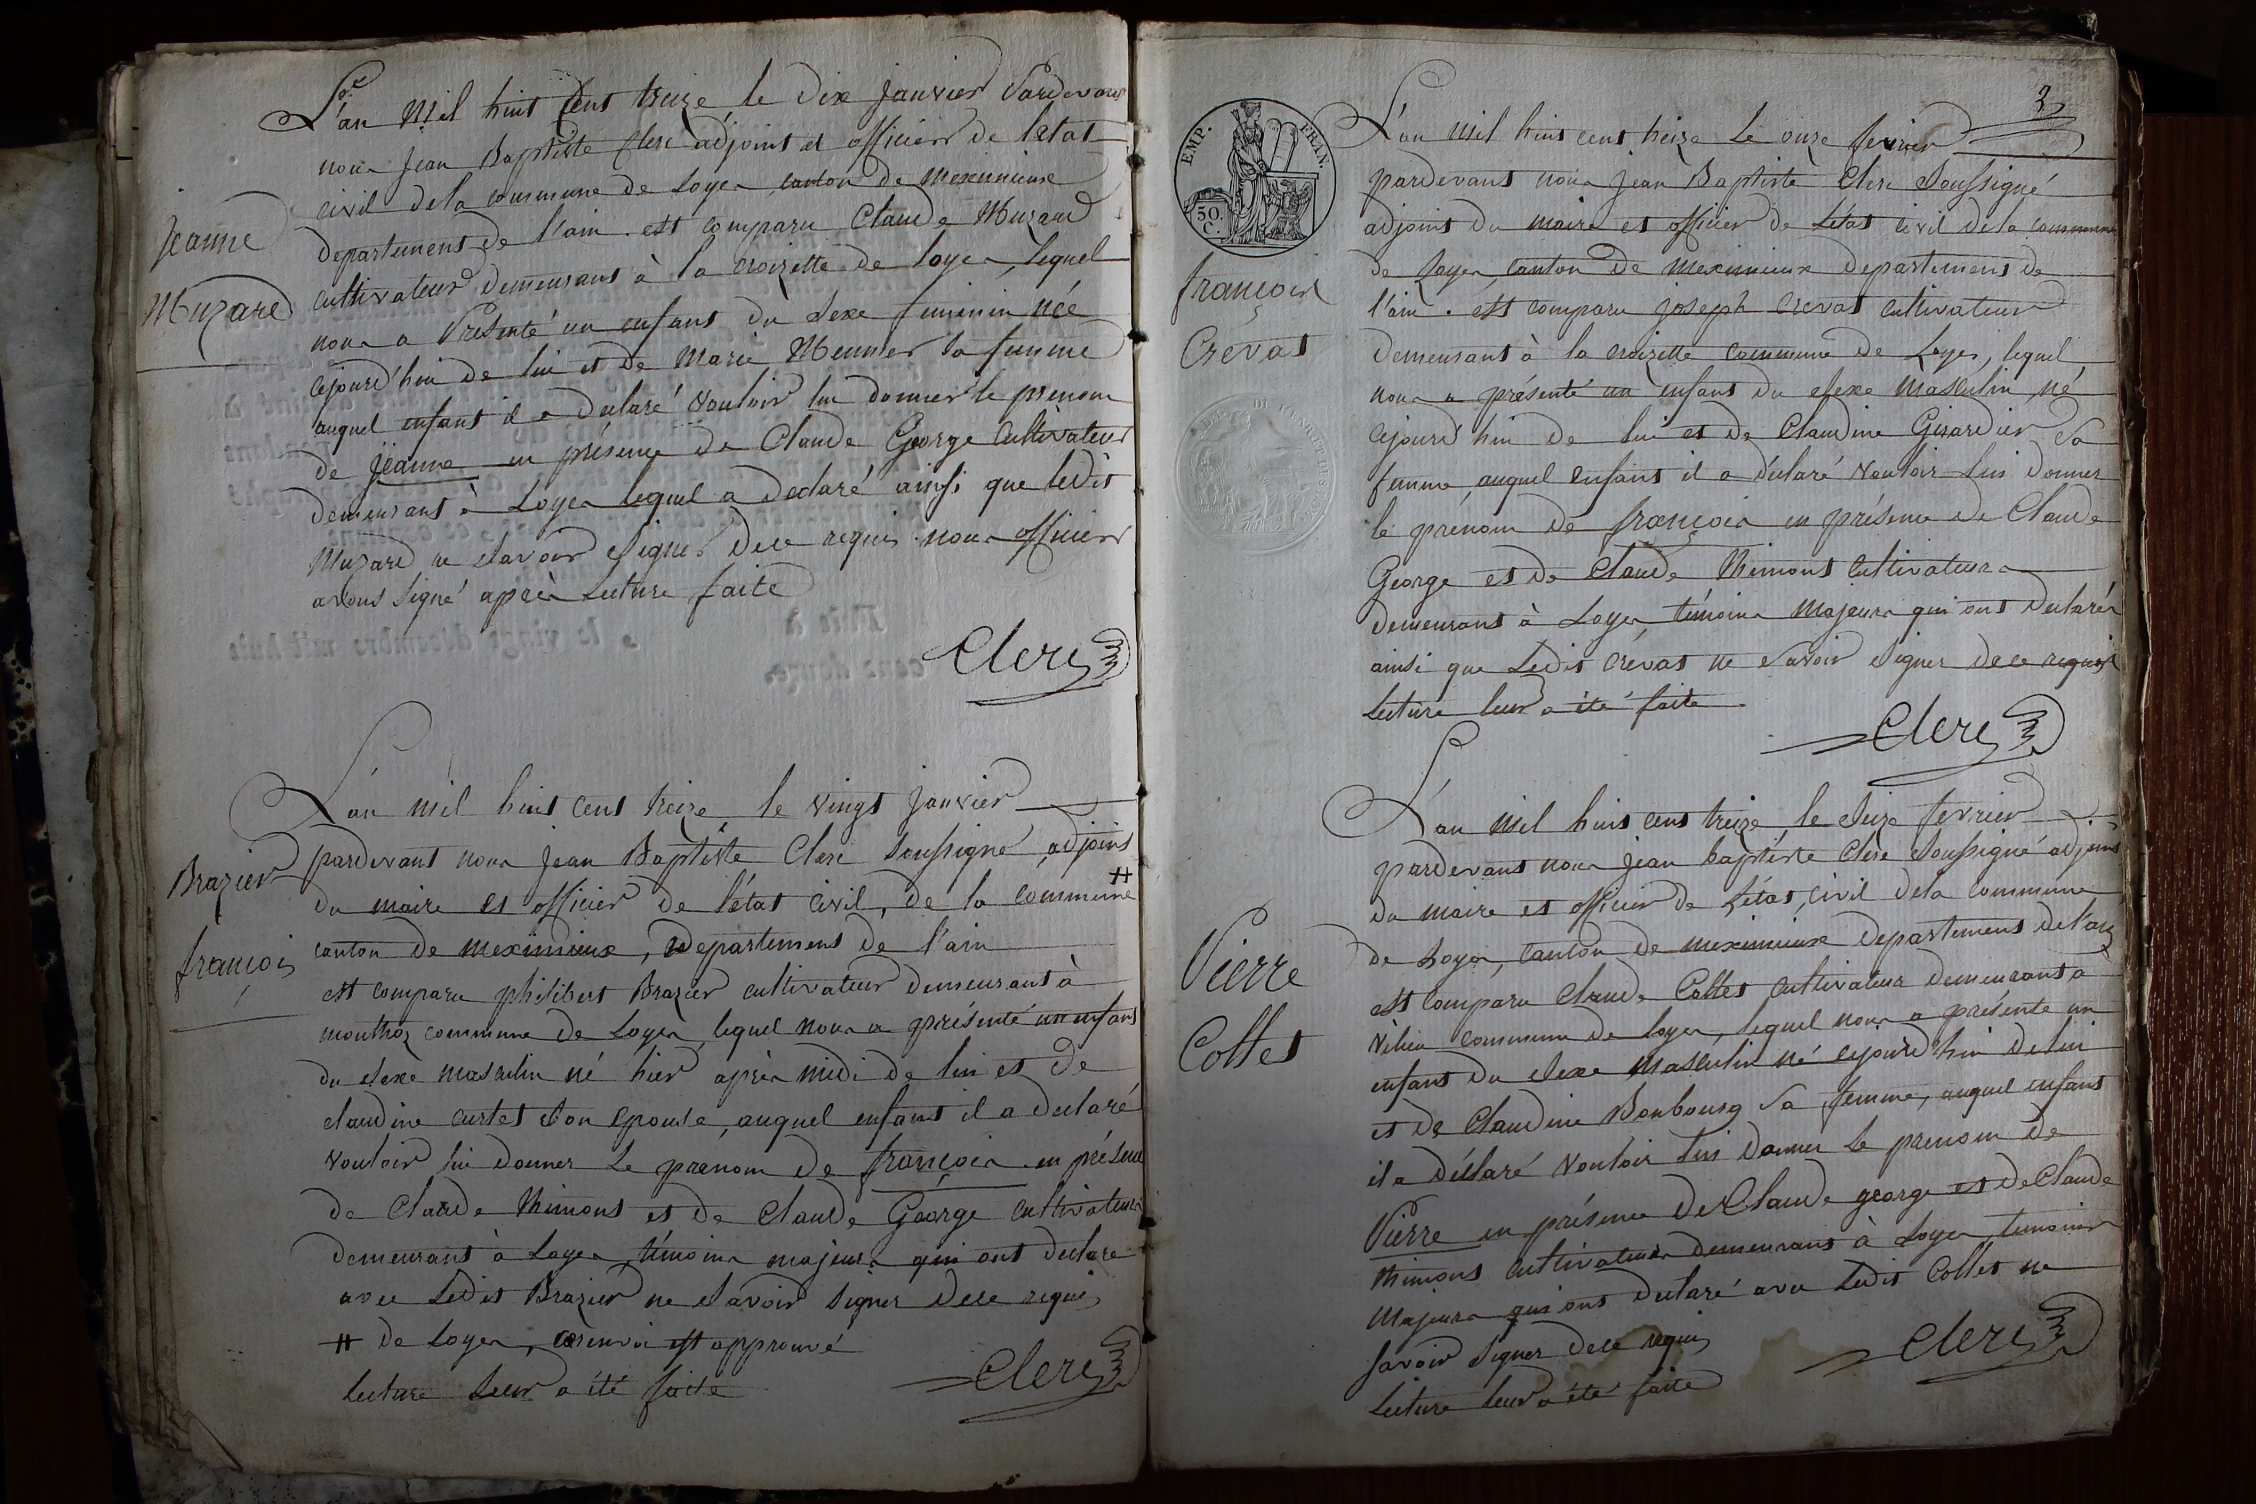 L'an mil huit cent treize le dix janvier Pardevant
nous Jean Baptiste Clerc adjoint et officier de l'etat
civil dela commune de Loyes canton de meximieux
departement de l'ain est comparu Claude Muzard
cultivateur demeurant à la croizette de loyes, lequel
nous a Présenté un enfant du sexe feminin née
cejourd'hui de lui et de Marie Meunier sa femme
auquel enfant il a declaré vouloir lui donner le prenom
de jeanne en présence de Claude George cultivateur
demeurant à Loyes lequel a declaré ainsi que ledit
Muzard ne savoir signer dece requis nous officier
avons signé après lecture faite
Clerc
Jeanne
Muzard
L'an mil huit cent treize le vingt janvier
pardevant nous Jean Baptiste Clerc soussigné adjoint
du maire et officier de l'état civil, de la commune #
canton de meximieux, departement de l'ain
est comparu philibert Brazier cultivateur demeurant à
monthoz commune de Loyes, lequel nous a présenté un enfant
du sexe masculin né hier après midi de lui et de
claudine curtet son epouse, auquel enfant il a declaré
vouloir lui donner le prenom de françois en présence
de Claude Thimont et de Claude George cultivateurs
demeurant à Loyes, témoins majeurs qui ont declare
avec Ledit Brazier ne savoir signer dece requis
# de Loyes, ce renvoi est approuvé
lecture leur a été faite
Clerc
Brazier
françois
3
EMP. FRAN.
50. C.
L'an mil huit cent treize le onze fevrier
pardevant nous Jean Baptiste Clerc soussigné
adjoint du maire et officier de l'état civil dela commune
de Loyes, canton de meximieux departement de
l'ain. est comparu joseph crevat cultivateur
demeurant à la croizette commune de Loyes, lequel
nous a présenté un enfant du sexe masculin né
cejourd'hui de lui et de Claudine Girardier sa
femme, auquel enfant il a déclaré vouloir lui donner
le prénom de françois en présence de Claude
George et de Claude Thimont cultivateurs
demeurant à Loyes, témoins majeurs qui ont declarés
ainsi que Ledit crevat ne savoir signer dece requis
Lecture leur a été faite
Clerc
françois
Crevat
L'an mil huit cent treize le seize fevrier
pardevant nous jean baptiste Clerc soussigné adjoint
du maire et officier de l'état, civil dela commune
de Loyes, canton de meximieux departement de l'ain
est comparu Claude Collet cultivateur demeurant à
vilieu commune de loyes, lequel nous a présenté un
enfant du sexe masculin né cejourd'hui de lui
et de Claudine Bonbourg sa femme, auquel enfant
il a déclaré vouloir lui donner le prenom de
Pierre en présence de Claude george et de Claude
thimont cultivateurs demeurant à Loyes temoins
Majeurs qui ont declaré avec Ledit Collet ne
savoir signer dece requis
Lecture leur a été faite
Clerc
Pierre
Collet